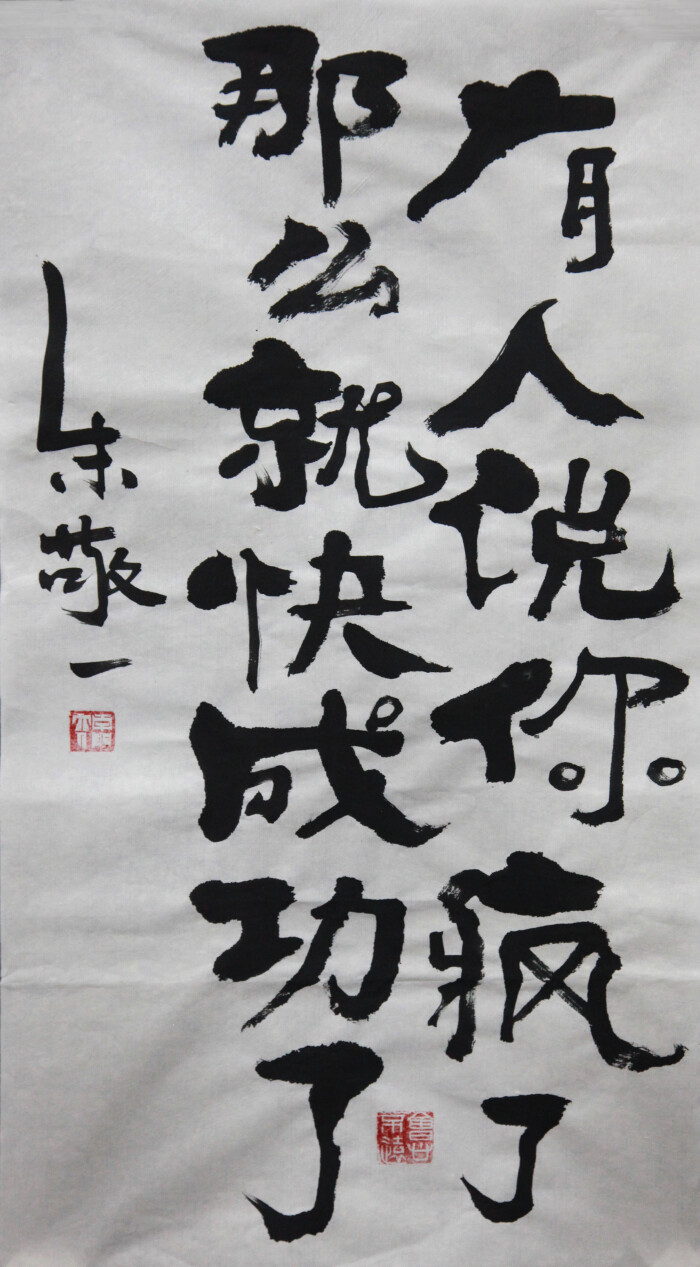 有人说你疯了
那么就快成功了
朱敬一